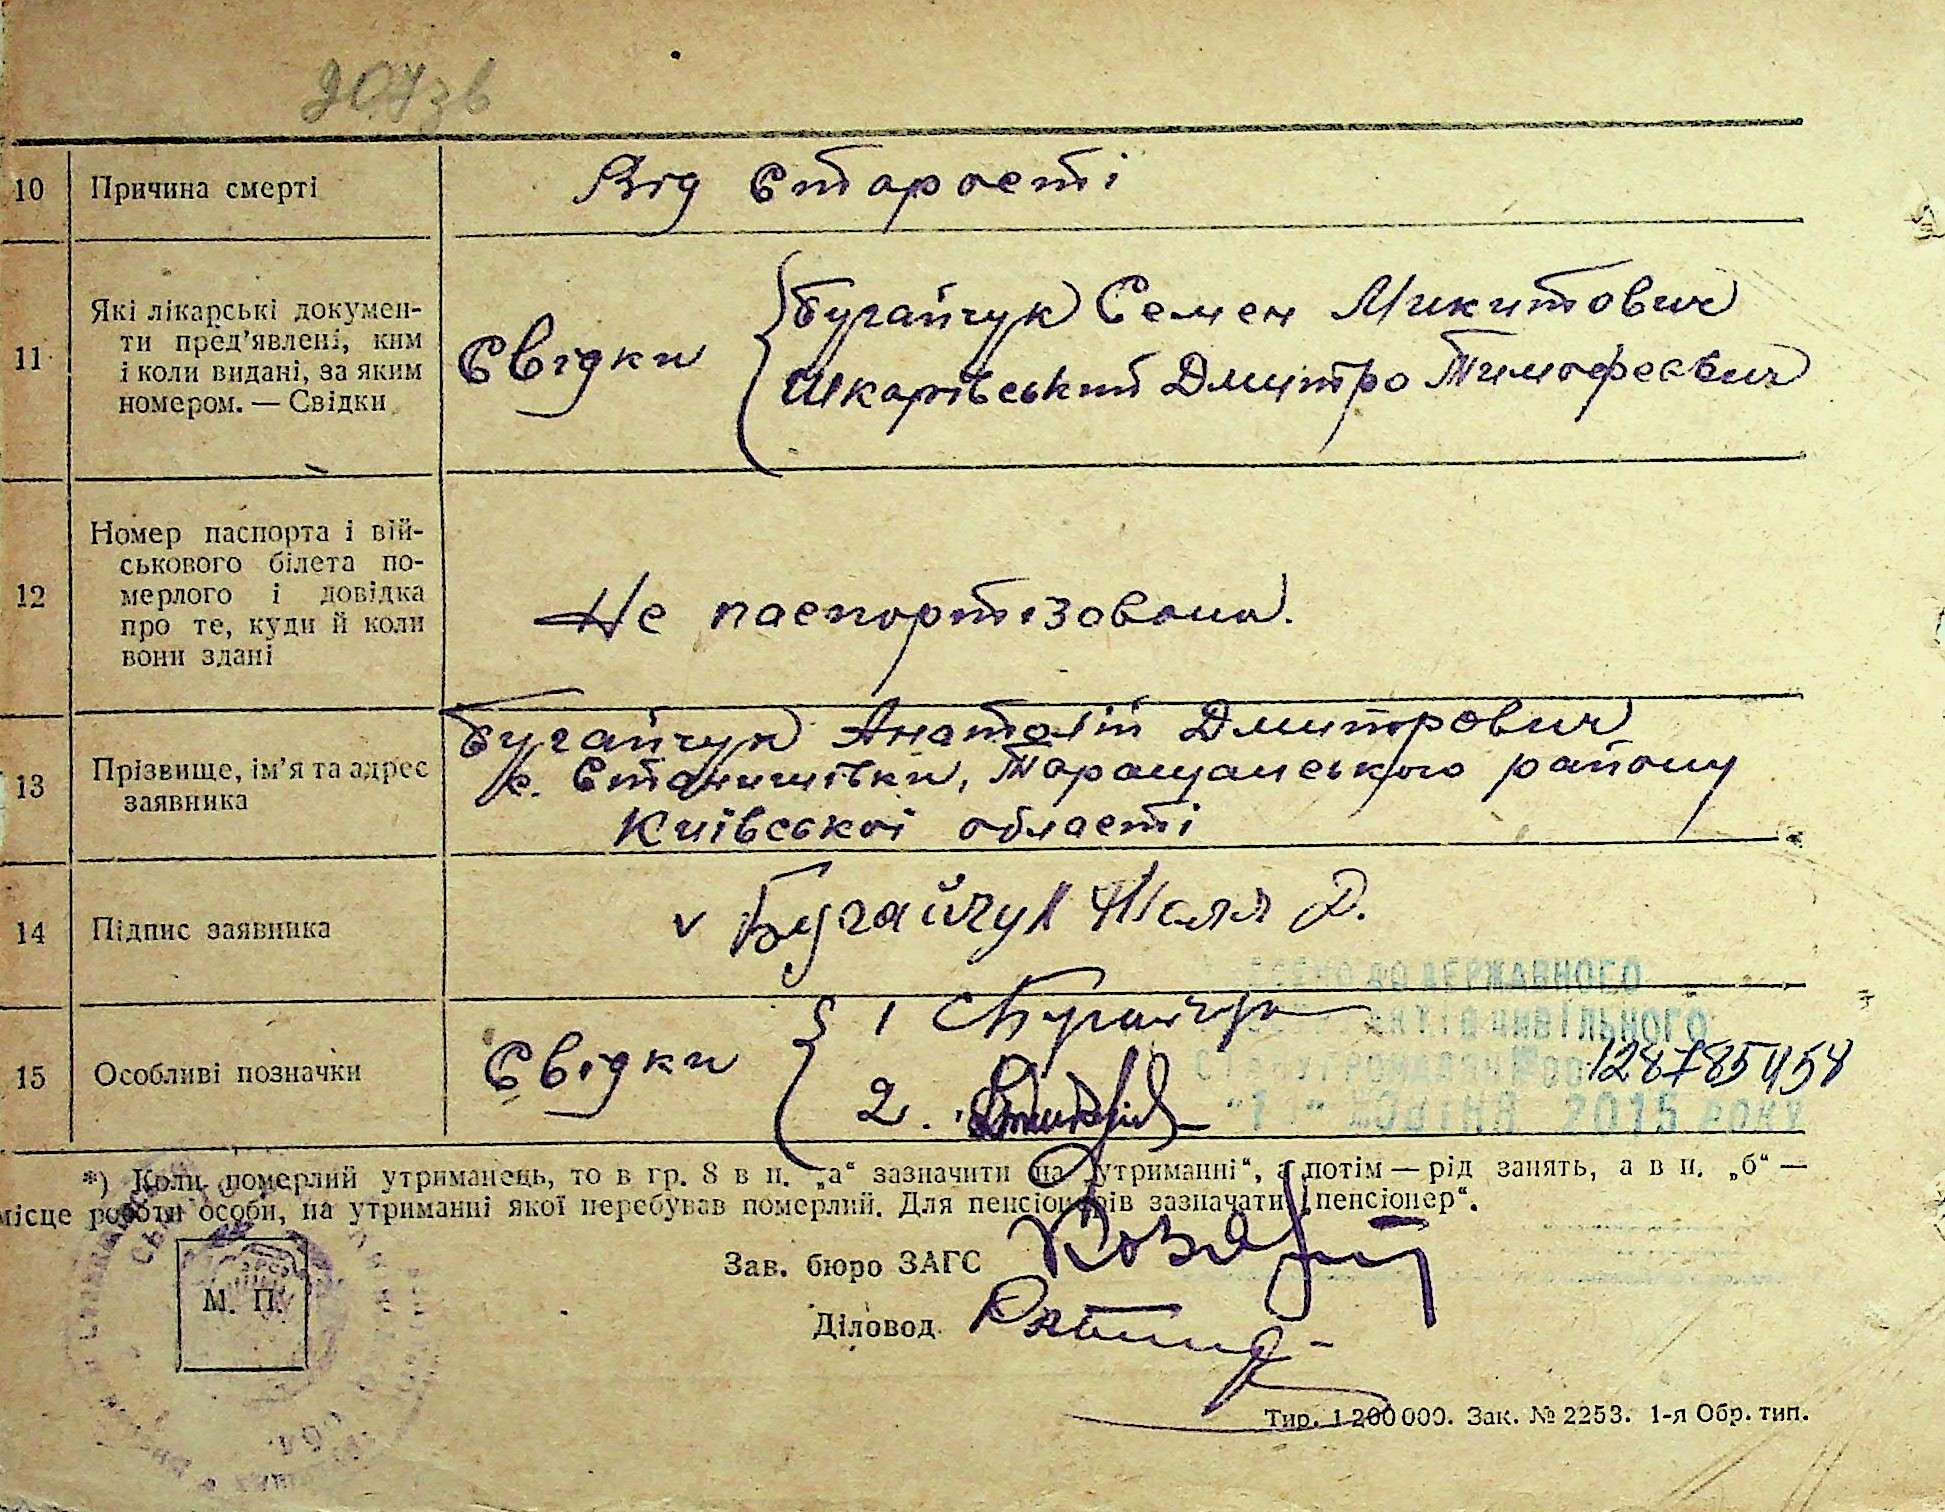 207зв
10 Причина смерті Від Старості
11 Які лікарські докумен-
ти пред'явлені, ким
і коли видані, за яким
номером. — Свідки
Свідки
Бугайчук Семен Микитович
Шкарівський Дмитро Тимофеєвич
12 Номер паспорта і вій-
ськового білета по-
мерлого і довідка
про те, куди й коли
вони здані
Не паспортізована.
13 Прізвище, ім'я та адрес
заявника
Бугайчук Анатолій Дмитрович
с. Станишівка, Таращанського району
Київської області
14 Підпис заявника
v Бугайчук Д.
15 Особливі позначки
Свідки
1 Бугайчук
2.
ДО ДЕРЖАВНОГО
ЦИВІЛЬНОГО
СТАНУ ГРОМАДЯН №00128785458
ЖОВТНЯ 2015 РОКУ
*) Коли померлий утриманець, то в гр. 8 в п. „а“ зазначити „на утриманні“, а потім — рід занять, а в п. „б“ —
місце роботи особи, на утриманні якої перебував померлий. Для пенсіонерів зазначати „пенсіонер“.
Зав. бюро ЗАГС
М. П.
Діловод
Тир. 1 200 000. Зак. № 2253. 1-я Обр. тип.